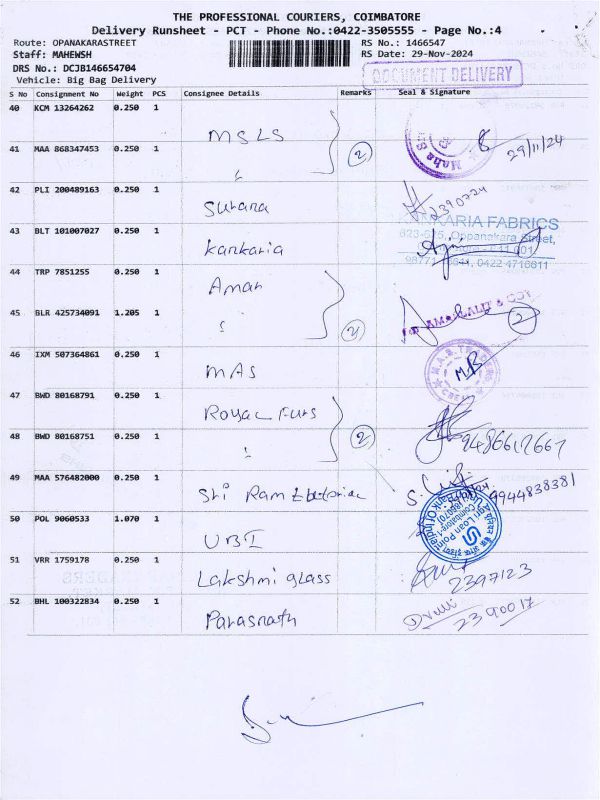 THE PROFESSIONAL COURIERS, COIMBATORE
Delivery Runsheet - PCT - Phone No.:0422-3505555 - Page No.:4
Route: OPANAKARASTREET
RS No.: 1466547
Staff: MAHEWSH
RS Date: 29-Nov-2024
DRS No.: DCJB146654704
Vehicle: Big Bag Delivery
DOCUMENT DELIVERY
S No Consignment No Weight PCS Consignee Details Remarks Seal & Signature
40 KCM 13264262 0.250 1 MSLS
2
29/11/24
41 MAA 868347453 0.250 1 "
42 PLI 200489163 0.250 1 Surana
2390724
43 BLT 101007027 0.250 1 Kankaria
KANKARIA FABRICS
Oppanakara Street,
0422 4716611
44 TRP 7851255 0.250 1 Aman
45 BLR 425734091 1.205 1 "
2
2
46 IXM 507364861 0.250 1 MAS
47 BWD 80168791 0.250 1 Royal Furs
2
48 BWD 80168751 0.250 1 "
9486612667
49 MAA 576482000 0.250 1 Sri Ram
9944838381
50 POL 9060533 1.070 1 UBI
Agri Loan Point
51 VRR 1759178 0.250 1 Lakshmi glass
2397123
52 BHL 100322834 0.250 1 Parasnath
2390017